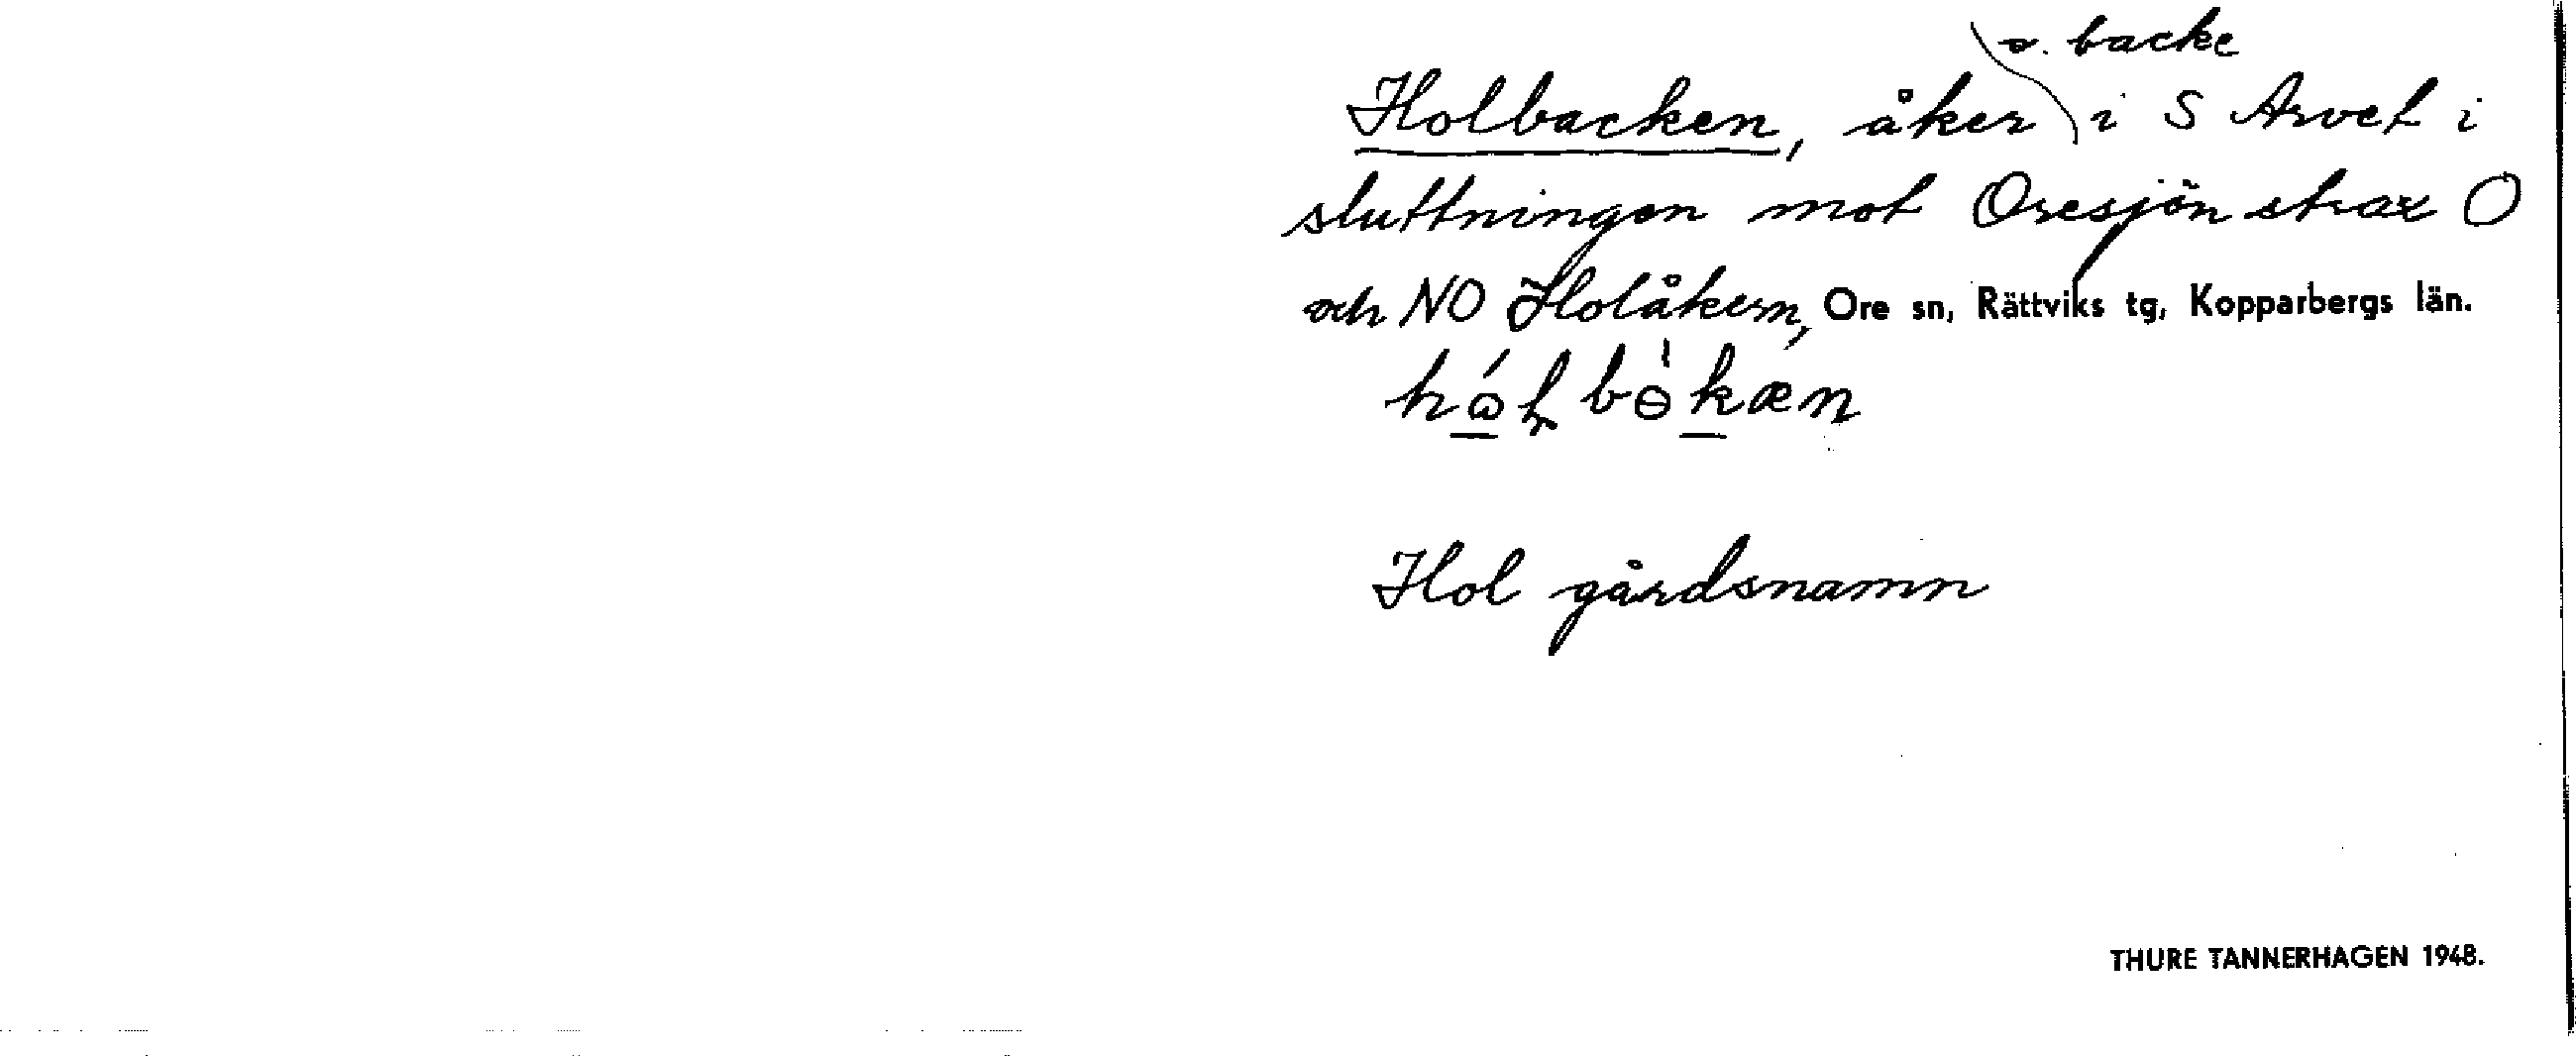 o. backe
Holbacken, åker i S Arvet i
sluttningen mot Oresjön strax O
och NO Holåkern, Ore sn, Rättviks tg, Kopparbergs län.
Hol gårdsnamn
THURE TANNERHAGEN 1948.